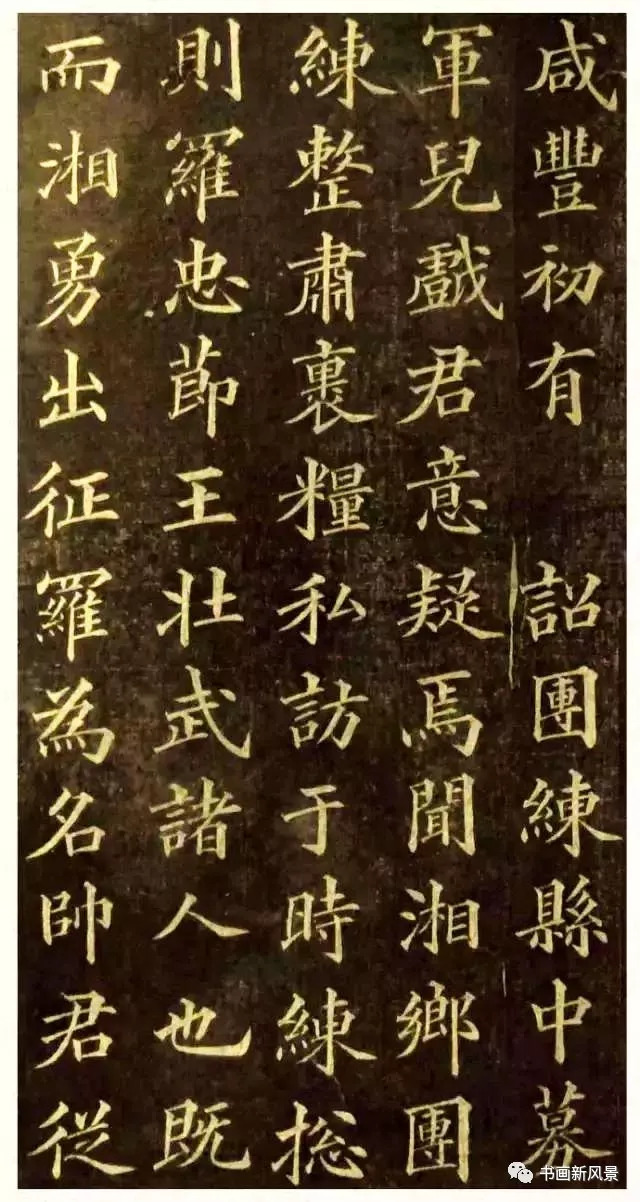 咸豐初有 詔團練縣中募
軍兒戲君意疑焉聞湘鄉團
練整肅裹糧私訪于時練總
則羅忠節王壯武諸人也既
而湘勇出征羅為名帥君從
书画新风景